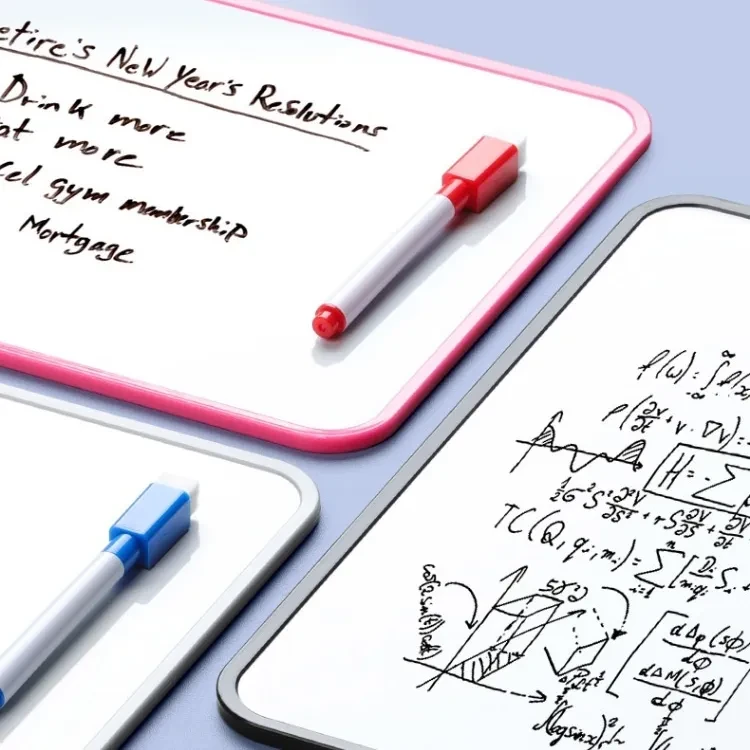 etire's New Year's Resolutions
Drink more
at more
cel gym membership
Mortgage
f(ω) = ∫_{-∞}^{∞} f(x
ρ(∂v/∂t + v · ∇v) =
H = - ∑
½σ²S² ∂²V/∂S² + rS ∂V/∂S + ∂V/∂t
TC(Q, qᵢ, mᵢ) = ∑ⁿᵢ₌₁ [Dᵢ/mᵢqᵢ Sᵢ +
dΔp(sφ)/dφ
dΔM(s,φ)/dφ